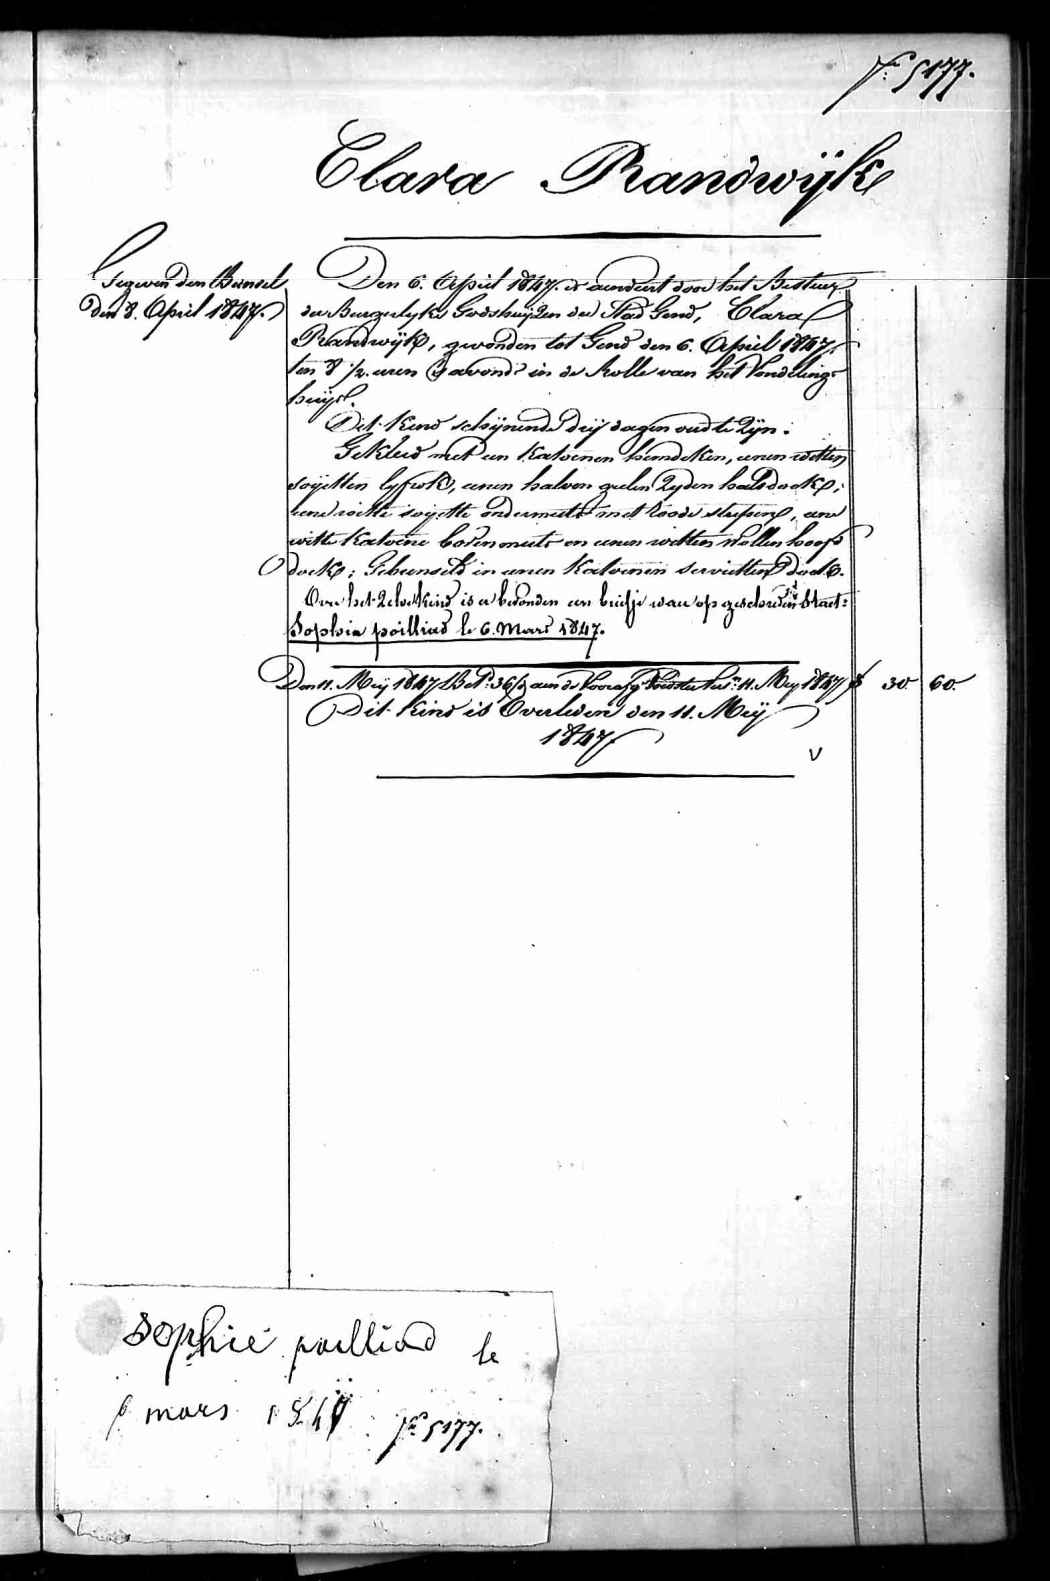 f.° 5177.
Clara Randwÿk
Gegeven den Bunsel
den 8. April 1847.
Den 6. April 1847. is aenveert door het Bestuer
der Burgerlyke Godshuyzen der Stad Gend, Clara
Randwÿk, gevonden tot Gend den 6. April 1847.
ten 8 1/2. uren 's avonds in de Rolle van het Vondeling-
huys.
Dit kind schynende drij dagen oud te zyn:
Gekleed met een katoenen hemdeken, eenen witten
soyetten lyfrok, eenen halven geelen zyden halsdoek;
eene witte soyette ondermuts met roode strepen, eene
witte katoene bovenmuts en eenen witten wollen hoofd
doek; Gebunseld in eenen katoenen servietten doek.
Over het zelve kind is er bevonden een briefje waer op geschreven staet:
Sophia poilliud le 6. Mars 1847.
Den 11. Meÿ 1847 Bet. 36/5 aen de 11. Mey 1847 30. 60.
Dit kind is Overleden den 11. Meÿ
1847
v
Sophie poilliud le
6 mars 1847 f.° 5177.